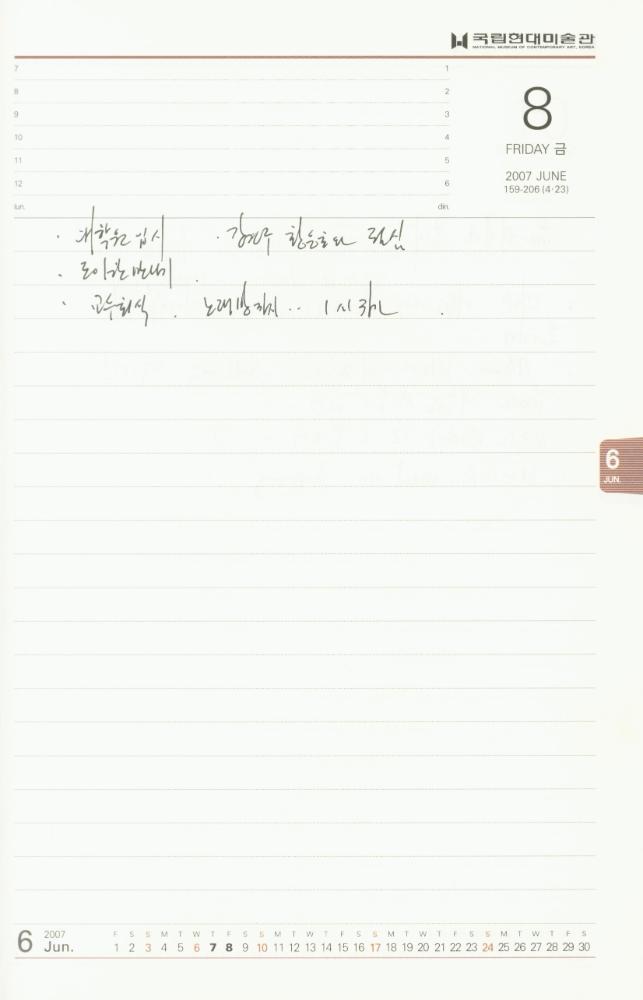 국립현대미술관
NATIONAL MUSEUM OF CONTEMPORARY ART, KOREA
7 1
8 2
9 3
10 4
11 5
12 6
lun. din.
8
FRIDAY 금
2007 JUNE
159-206 (4·23)
· 대학원 입시 · 점심
·
· 교수회식 . 노래방까지 .. 1시 귀가 .
6
JUN.
6 2007 Jun.
F S S M T W T F S S M T W T F S S M T W T F S S M T W T F S
1 2 3 4 5 6 7 8 9 10 11 12 13 14 15 16 17 18 19 20 21 22 23 24 25 26 27 28 29 30